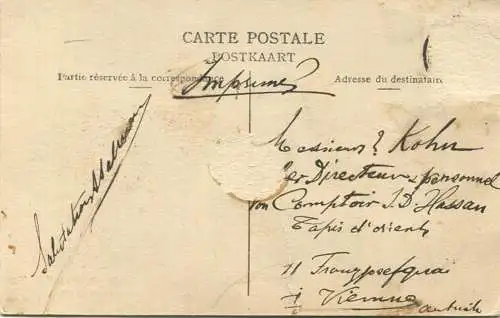 CARTE POSTALE
POSTKAART
Partie réservée à la correspondance
Adresse du destinataire
Imprimé
Messieurs Kohn
Directeur personnel
Comptoir J. D. Hassan
Tapis d'orient
11 Franzjosefquai
Vienne
Salutations